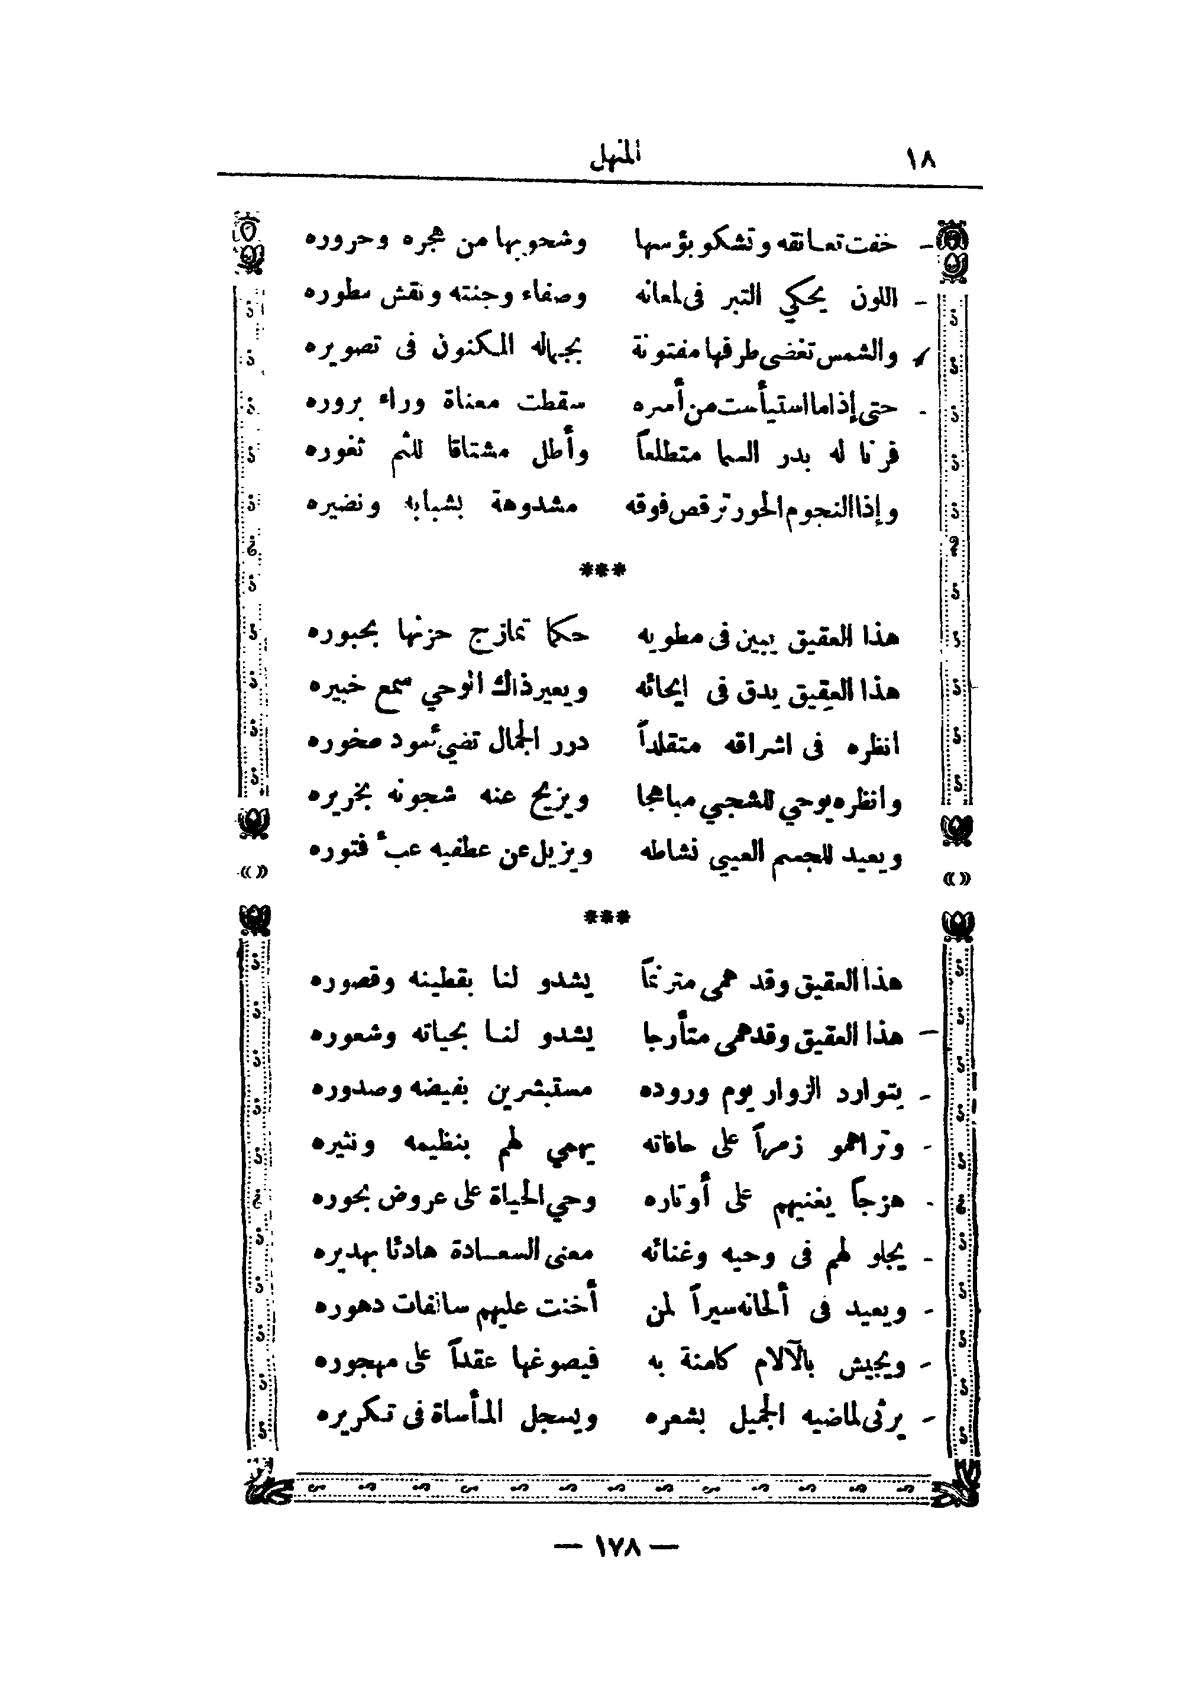 ١٨ المنهل
خفت تعانقه وتشكو بؤسها وشحوبها من هجره وحروره
اللون يحكي التبر فى لمعانه وصفاء وجنته ونقش سطوره
والشمس تغضى طرفها مفتونة بجماله المكنون فى تصويره
حتى إذا ما استيأست من أمره سقطت معناة وراء بروره
فرنا له بدر السما متطلعاً وأطل مشتاقا للثم ثغوره
وإذا النجوم الحور ترقص فوقه مشدوهة بشبابه ونضيره
***
هذا العقيق يبين فى مطويه حكما تمازج حزنها بحبوره
هذا العقيق يدق فى ايحائه ويعير ذاك الوحي سمع خبيره
انظره فى اشراقه متقلداً درر الجمال تضيء سود صخوره
وانظره يوحي للشجي مباهجا ويزيح عنه شجونه بخريره
ويعيد للجسم العيي نشاطه ويزيل عن عطفيه عبء فتوره
***
هذا العقيق وقد همى مترنماً يشدو لنا بقطينه وقصوره
هذا العقيق وقد همى متأرجا يشدو لنا بحياته وشعوره
يتوارد الزوار يوم وروده مستبشرين بفيضه وصدوره
وتراهمو زمراً على حافاته يهمي لهم بنظيمه ونثيره
هزجاً يغنيهم على أوتاره وحي الحياة على عروض بحوره
يجلو لهم فى وحيه وغنائه معنى السعادة هادئا بهديره
ويعيد فى ألحانه سيراً لمن أخنت عليهم سالفات دهوره
ويجيش بالآلام كامنة به فيصوغها عقداً على مهجوره
يرثى لماضيه الجميل بشعره ويسجل المأساة فى تكريره
— ١٧٨ —